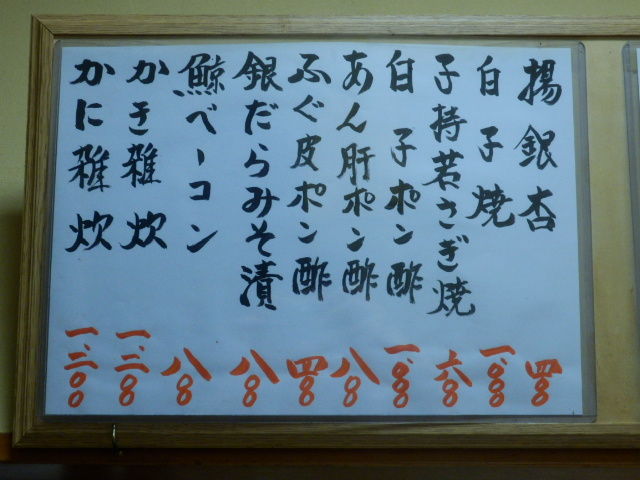 揚銀杏 四〇〇
白子焼 一、〇〇〇
子持若さぎ焼 六〇〇
白子ポン酢 一、〇〇〇
あん肝ポン酢 八〇〇
ふぐ皮ポン酢 四〇〇
銀だらみそ漬 八〇〇
鯨ベーコン 八〇〇
かき雑炊 一、三〇〇
かに雑炊 一、三〇〇